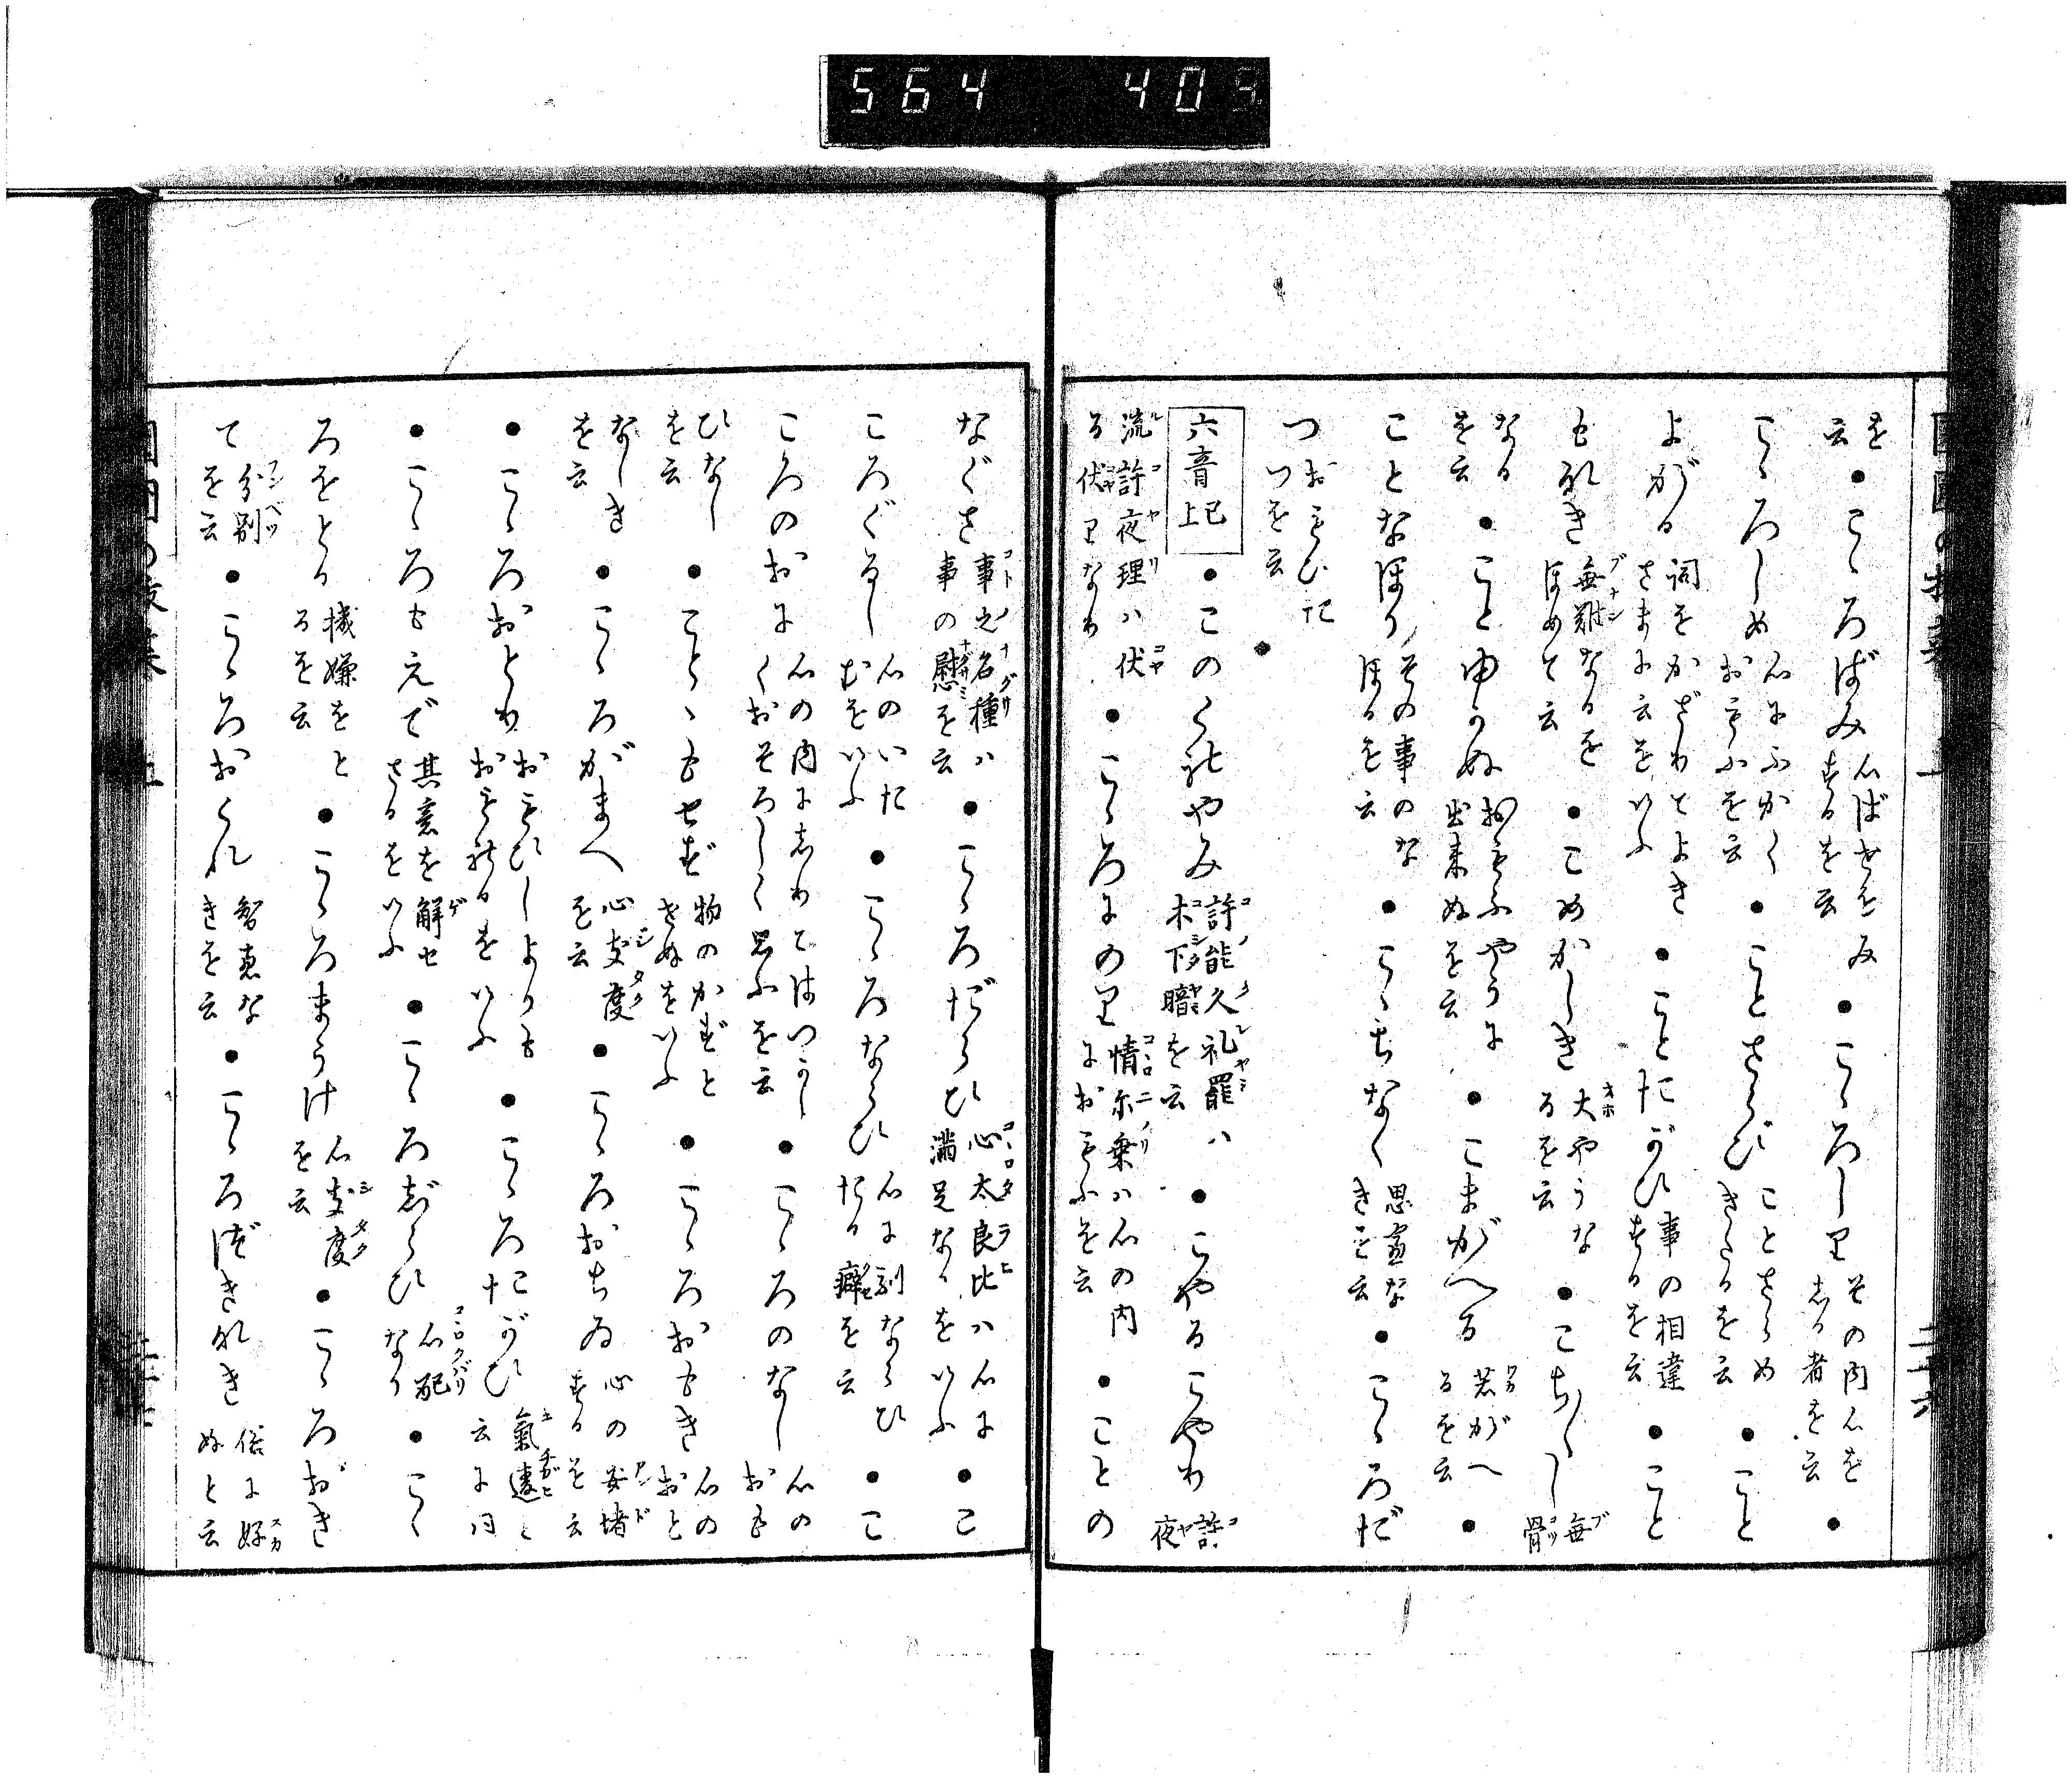 564 409
を云●こゝろばみ 心ばせをみするを云●こゝろしり その内心をしる者を云●
こゝろしめ 心にふかくおもふを云●ことさらび ことさらめきたるを云●こと
よがる 詞をかざりてよきさまに云をいふ●ことたがひ 事の相違するを云●こと
もなき 無難なるをほめて云●こめかしき 大やうなるを云●こちゞし 無骨
なるを云●ことゆかぬ おもふやうに出来ぬを云●こまがへる 若がへるを云●
ことなほり その事のなほるを云●こゝちなく 思慮なきを云●こゝろだ
つ おもひたつを云
六音 上已●このくれやみ 許能久礼罷ハ木下暗を云●こやるこやり 許夜
流許夜理ハ伏る伏りなり●こゝろにのり 情尓乗ハ心の内におもふを云●ことの
なぐさ 事之名種ハ事の慰を云●こゝろだらひ 心太良比ハ心に満足なるをいふ●こ
ころぐるし 心のいたむをいふ●こゝろならひ 心に馴ならひたる癖を云●こ
ころのおに 心の内にしりてはつかしくおそろしく思ふを云●こゝろのなし 心のおも
ひなしを云●ことゝもせず 物のかずとせぬをいふ●こゝろおもき 心のおと
なしきを云●こゝろがまへ 心支度を云●こゝろおちゐ 心の安堵するを云
●こゝろおとり おもひしよりもおとれるをいふ●こゝろたがひ 氣違と云に同
●こゝろもえで 其意を解せざるをいふ●こゝろしらひ 心配なり●こゝ
ろをとる 機嫌をとるを云●こゝろまうけ 心支度を云●こゝろおき
て 分別を云●こゝろおくれ 智恵なきを云●こゝろづきなき 俗に好ぬと云